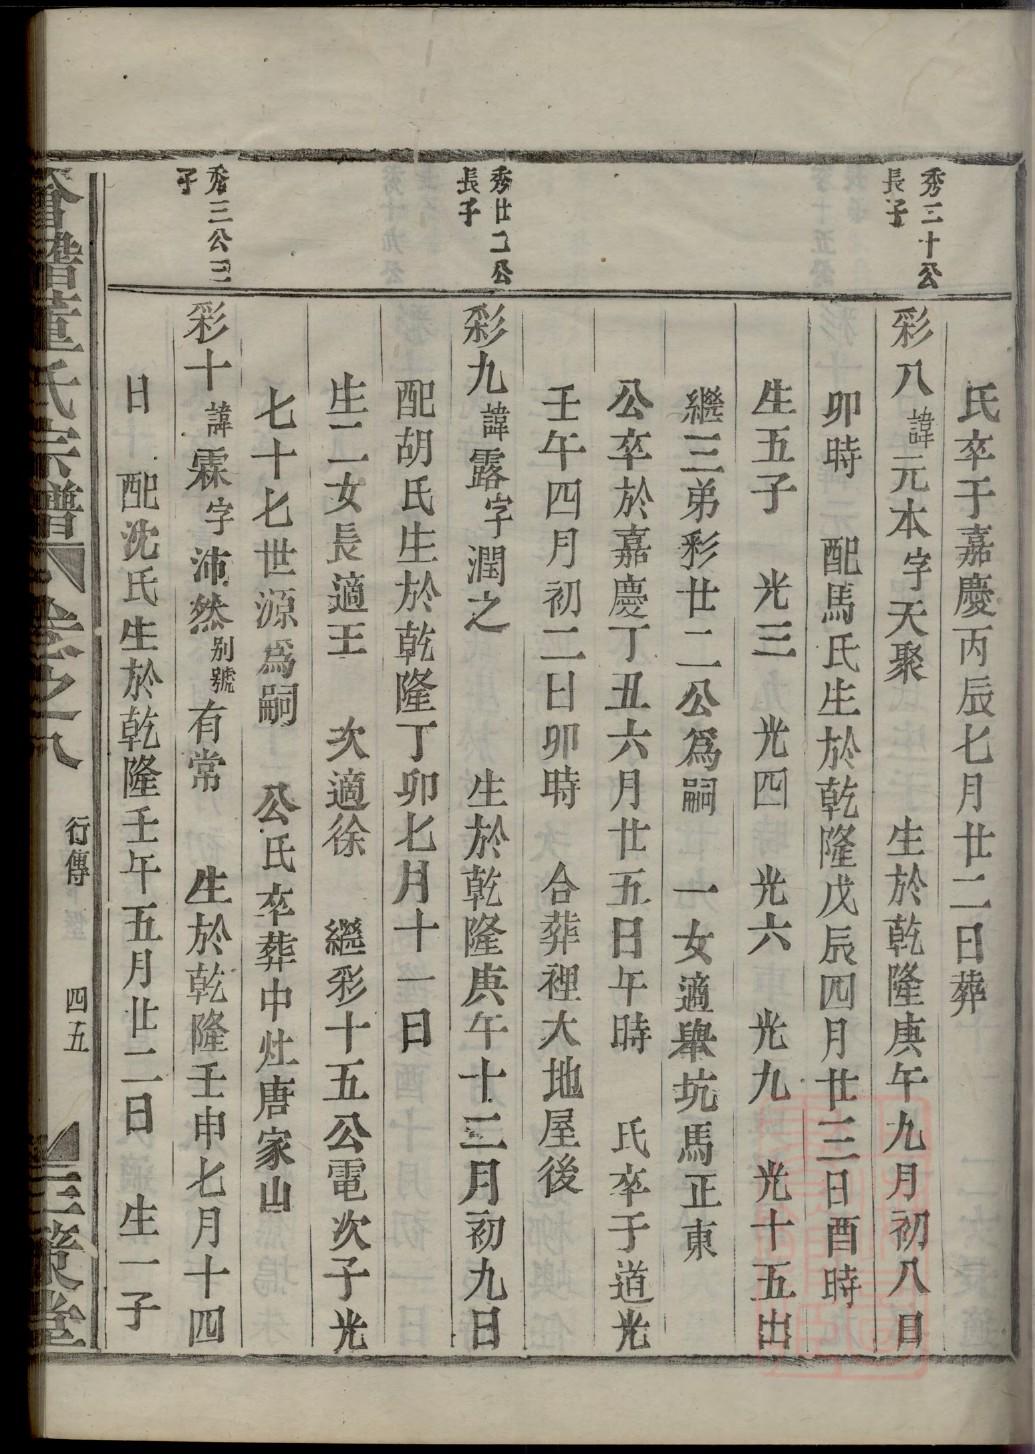 氏卒于嘉慶丙辰七月廿二日葬
秀二十公
長子
彩八諱元本字天聚 生於乾隆庚午九月初八日
卯時 配馬氏生於乾隆戊辰四月廿三日酉時
生五子 光三 光四 光六 光九 光十五出
繼三弟彩廿二公爲嗣 一女適舉坑馬正東
公卒於嘉慶丁丑六月廿五日午時 氏卒于道光
壬午四月初二日卯時 合葬裡大地屋後
秀廿二公
長子
彩九諱露字潤之 生於乾隆庚午十二月初九日
配胡氏生於乾隆丁卯七月十一日
生二女長適王 次適徐 繼彩十五公電次子光
七十七世源爲嗣 公氏卒葬中灶唐家山
秀三公三
子
彩十諱霖字沛然别號有常 生於乾隆壬申七月十四
日 配沈氏生於乾隆壬午五月廿二日 生一子
董氏宗譜 卷之八 行傳 四五 三策堂